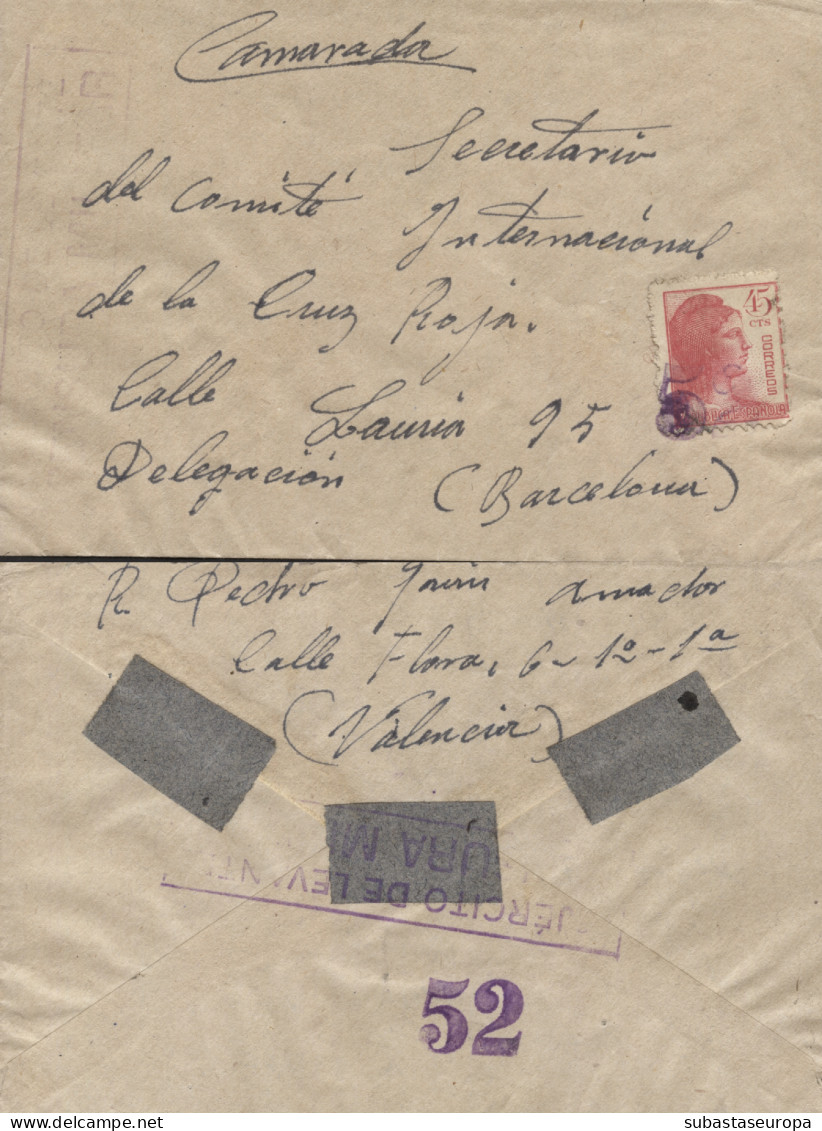 Camarada
Secretario
del Comité Internacional
de la Cruz Roja.
Calle Lauria 95
Delegación (Barcelona)
45
CTS
CORREOS
R. Pedro amador
Calle Flora, 6- 1º-1ª
(Valencia)
URA M
EJÉRCITO DE LEVANTE
52
subastaseuropa